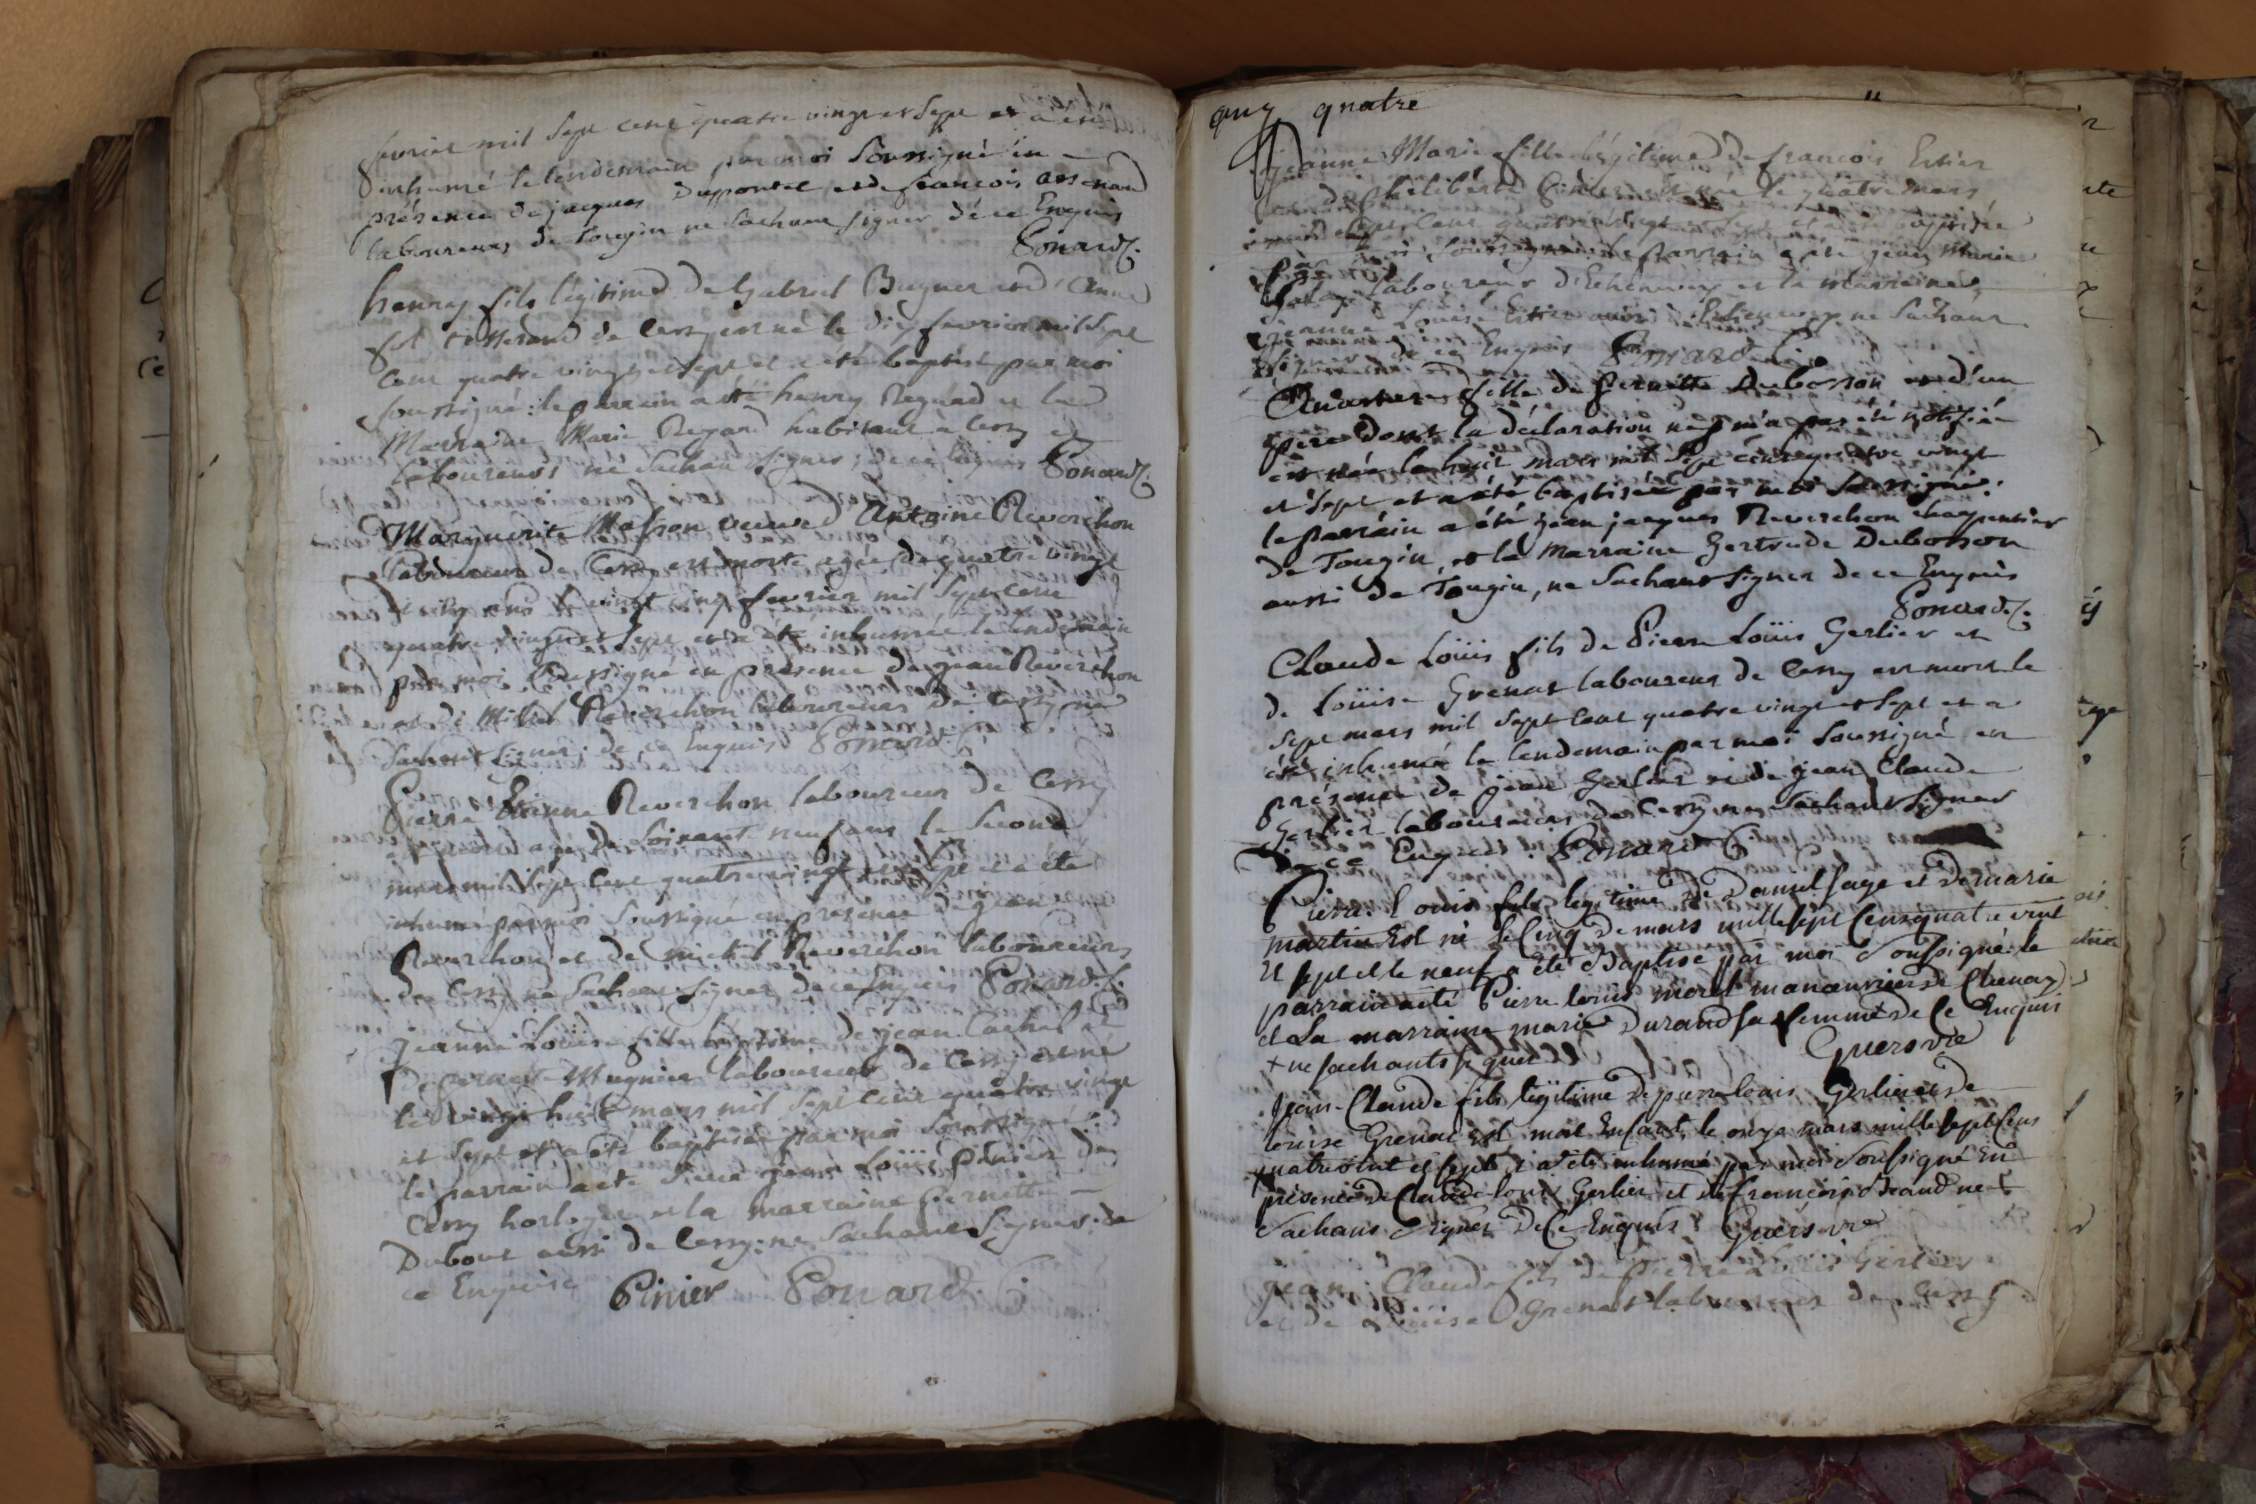 fevrier mil sept cent quatre vingt et sept et a été
inhumé le lendemain par moi soussigné en
présence de jacques Dupontet et de francois
laboureurs de Tougin ne sachant signer de ce Enquis
Ponard
henry fils légitime de Gabriel Bugner et d'Anne
tisserand de Cessy est né le dix fevrier mil sept
cent quatre vingt et sept et a été baptisé par moi
soussigné : le parrain a été henry Regard et la
Marraine Marie Regard habitants à Cessy et
laboureurs ne sachant signer de ce Enquis Ponard
Marguerite Masson veuve d'Antoine Reverchon
laboureur de Cessy est morte agée de quatre vingt
et ans le vingt cinq fevrier mil sept cent
quatre vingt et sept et a été inhumée le lendemain
par moi soussigné en présence de jean Reverchon
et de Michel Reverchon laboureurs de Cessy ne
sachant signer de ce Enquis Ponard
Pierre Etienne Reverchon laboureur de Cessy
est mort agé de soixante neuf ans le second
mars mil sept cent quatre vingt et sept et a été
inhumé par moi soussigné en présence de jean
Reverchon et de michel Reverchon laboureurs
de Cessy ne sachant signer de ce Enquis Ponard
jeanne Loüise fille légitime de jean Cachat et
de pernette Mugnier laboureur de Cessy est née
le vingt huit mars mil sept cent quatre vingt
et sept et a été baptisée par moi soussigné :
le parrain a été Sieur jean Loüis pinier de
Cessy horloger et la marraine pernette
Dubout aussi de Cessy : ne sachant signer de
ce Enquise Pinier Ponard
quatre
jeanne Marie fille légitime de francois Estier
et de philiberte est née le quatre mars
mil sept cent quatre vingt et sept et a été baptisée
par moi soussigné le parrain a été jean Marie
laboureur d'Echenevex et la Marraine
jeanne Loüise Estier aussi d'Echenevex ne sachant
signer de ce Enquis Ponard
fille de pernette Dubosson et d'un
pere dont la déclaration ne m'a pas été notifiée
est née le huit mars mil sept cent quatre vingt
et sept et a été baptisée par moi soussigné :
le parrain a été jean jacques Reverchon charpentier
de Tougin, et la Marraine Gertrude Dubosson
aussi de Tougin, ne sachant signer de ce Enquis
Ponard
Claude Loüis fils de Pierre Loüis Gerlier et
de Loüise Grenat laboureur de Cessy est mort le
sept mars mil sept cent quatre vingt et sept et a
été inhumé le lendemain par moi soussigné en
présence de jean Gerlier et de jean Claude
Gerlier laboureurs de Cessy ne sachant signer
de ce Enquis Ponard
Pierre Louis fils legitime de Daniel sage et de marie
martin Est né le Cinq de mars mille sept Cens quatre vint
et sept et le neuf a été Baptisé par moi Soussigné le
parrain a été Pierre louis morel manoeuvrier de Chenaz
et La marraine marie Durand sa femme de Ce Enquis
+ ne sachants signer Guersvre
Jean-Claude fils légitime de pierre louis Gerlier et de
louise Grenat Est mort Enfant le onze mars mille sept Cens
quatre vint et sept et a été inhumé par moi Soussigné En
présence de Claude louis Gerlier et de françois Brand ne
Sachans Signer De Ce Enquis Guersvre
jean Claude fils de Pierre Loüis Gerlier
et de Loüise Grenat laboureur de Cessy